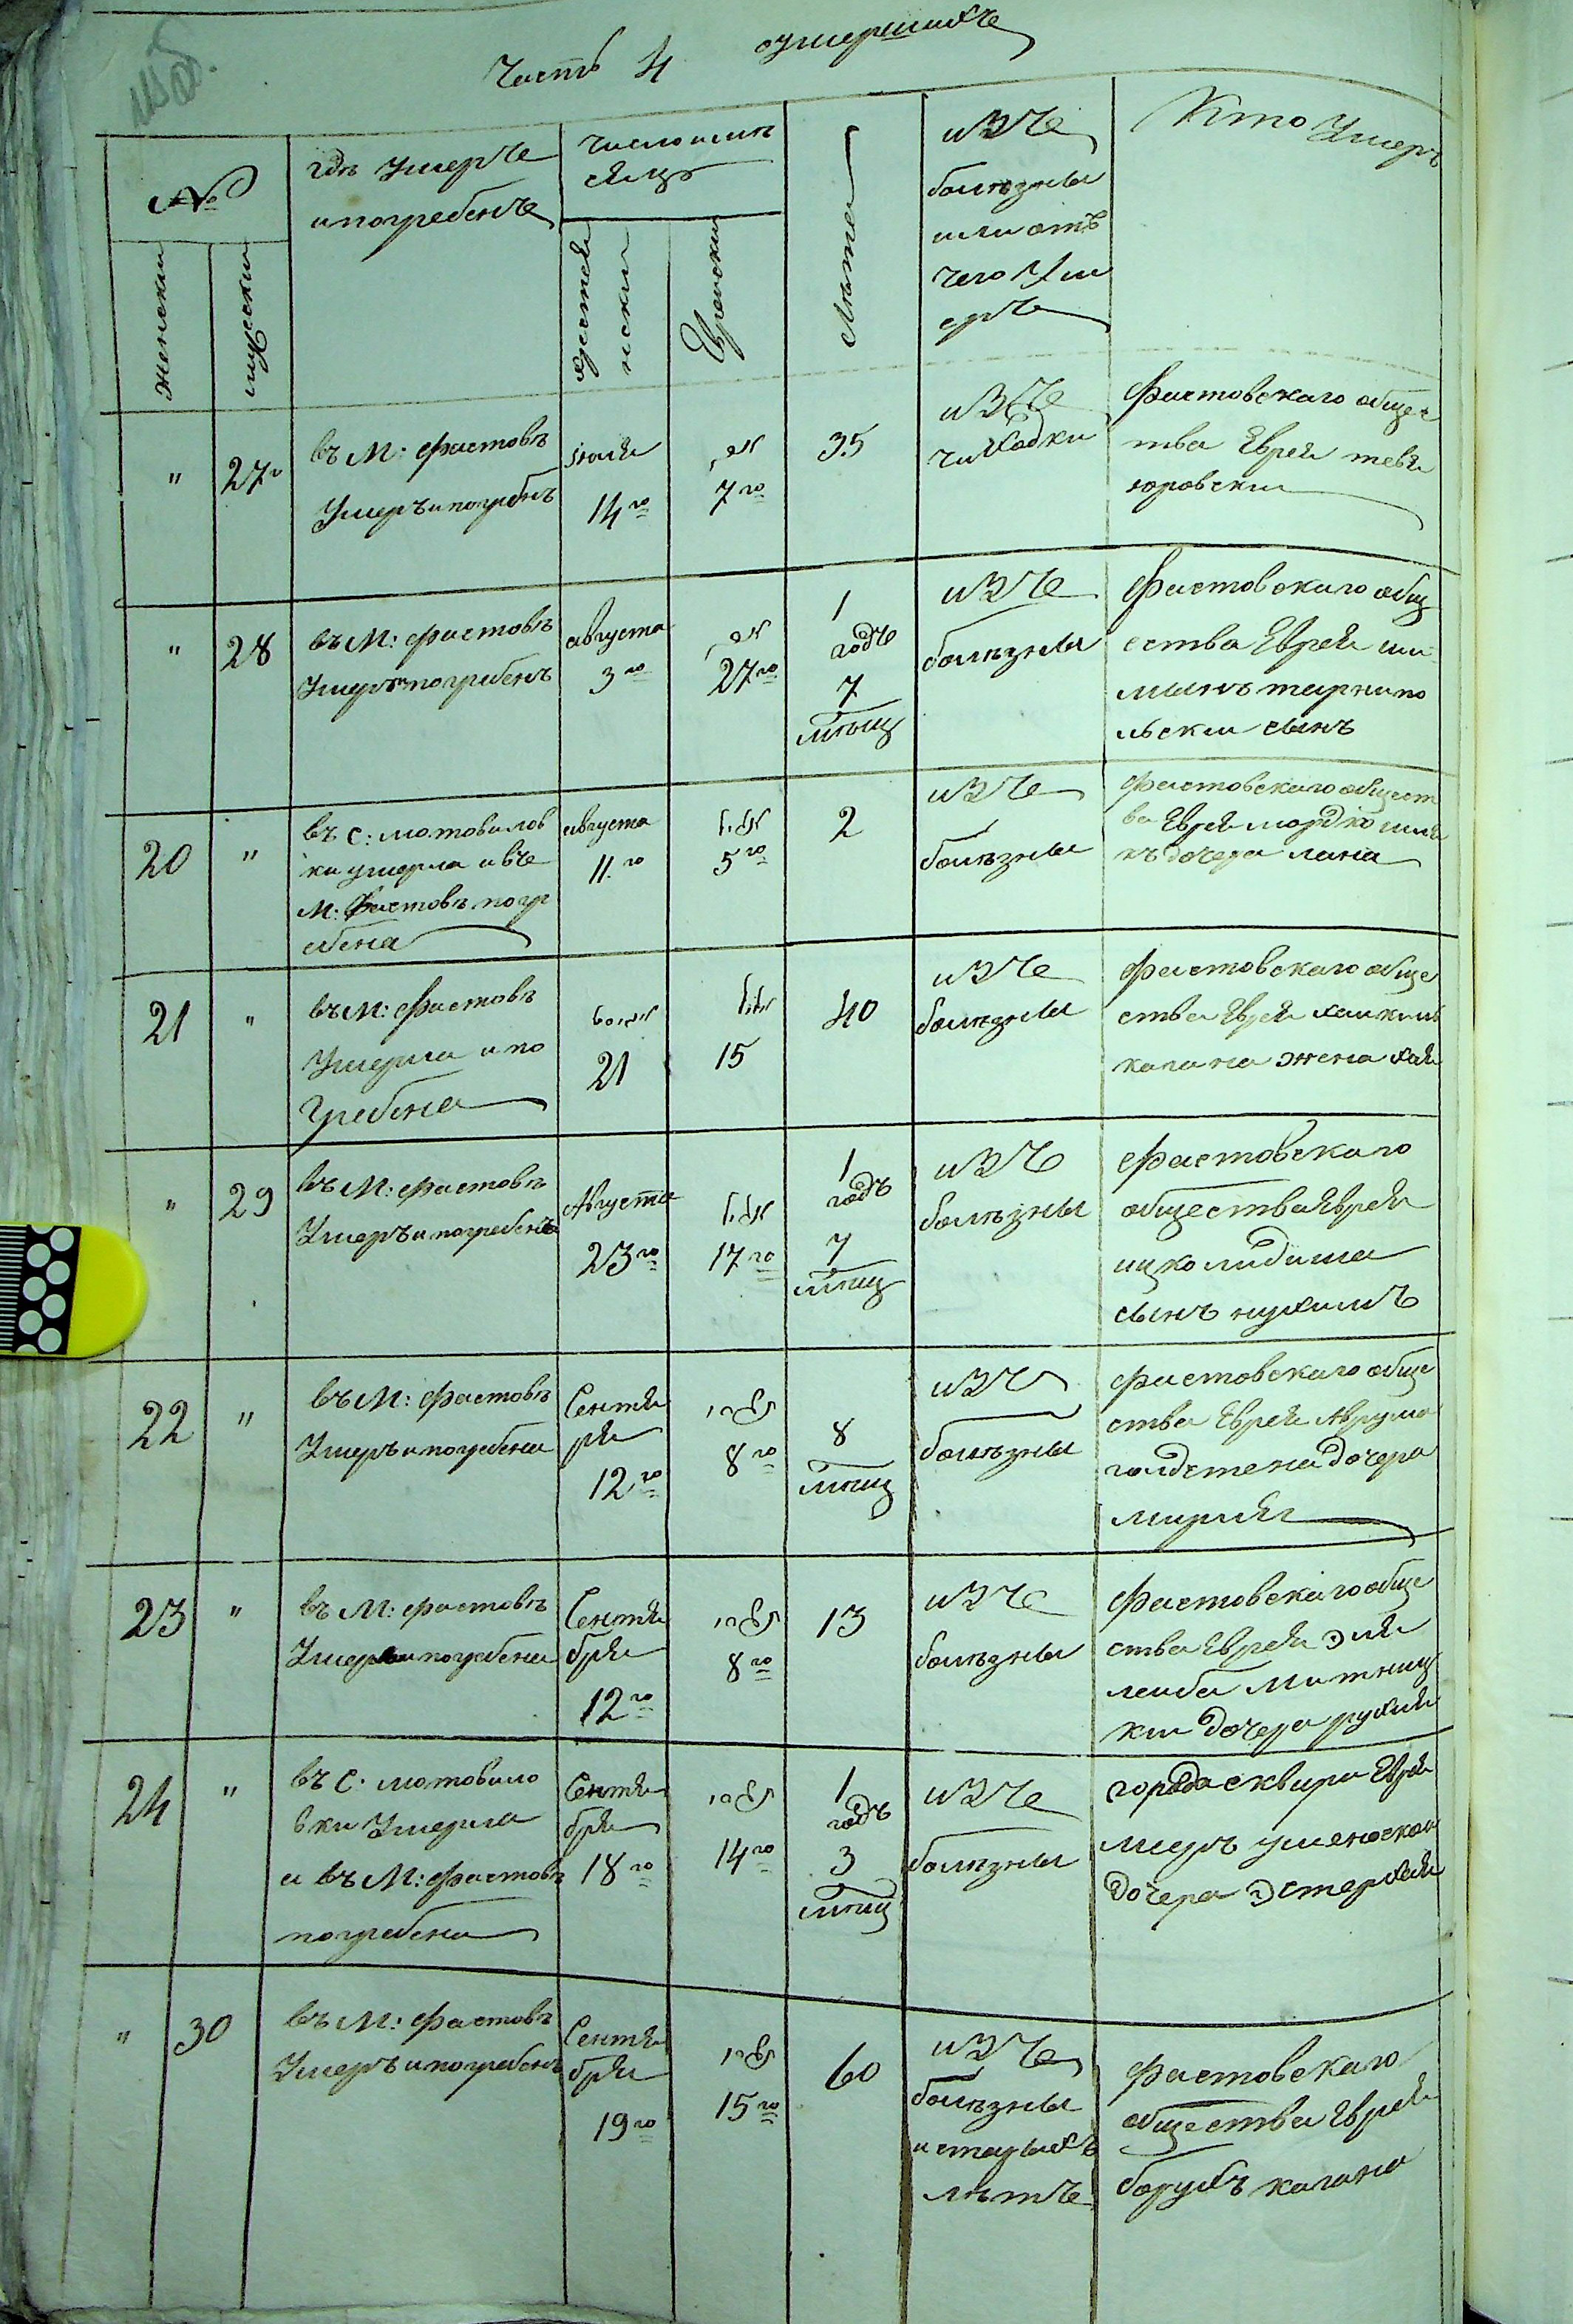 Часть 4 Оумершихъ
№
женскии
мужески
гдѣ Умеръ
и погребенъ
число и мѣ
сяцъ
христия
нски
Еврейски
Лѣта
изъ
болѣзны
или отъ
чего Ум
еръ
Кто Умеръ
" 27
въ М: фастовѣ
Умеръ и погребенъ
июля
14го
אב
7го
35
изъ
чихотки
Фастовскаго общес
тва Еврей тевя
юровски
" 28
въ М: фастовѣ
Умеръ и погребенъ
августа
3го
אב
27го
1
годъ
7
мѣсяц
изъ
болѣзны
Фастовскаго общ
ества Еврея
тарнипо
льски сынъ
20 "
въ с: мотовилов
ки умерла и въ
М: Фастовѣ погр
ебена
августа
11го
אלול
5го
2
изъ
болѣзны
Фастовскаго общест
ва Еврея мордко
дочера
21 "
въ М: Фастовѣ
Умерла и по
гребена
21
אלול
15
40
изъ
болѣзны
Фастовскаго обще
ства Еврея
кагана жена хая
" 29
въ М: фастовѣ
Умеръ и погребенъ
Августа
23го
אלול
17го
1
годъ
7
мѣсяц
изъ
болѣзны
Фастовскаго
общества Еврея
ицко
сынъ нухимъ
22 "
въ М: фастовѣ
Умеръ и погребена
Сентя
бря
12го
תשרי
8го
8
мѣсяц
изъ
болѣзны
фастовскаго обще
ства Еврея Аврума
голдстена дочера
мириям
23 "
въ М: фастовѣ
Умерла и погребена
Сентя
бря
12го
תשרי
8го
13
изъ
болѣзны
Фастовскаго обще
ства Еврея эля
лейба Митниц
ки дочера рухля
24 "
въ с: мотовило
вки Умерла
и въ М: фастовѣ
погребена
Сентя
бря
18го
תשרי
14го
1
годъ
3
мѣсяц
изъ
болѣзны
города сквира Еврея
меръ уманской
дочера Эстер хая
" 30
въ М: фастовѣ
Умеръ и погребенъ
Сентя
бря
19го
תשרי
15го
60
изъ
болѣзны
и старыхъ
лѣтъ
Фастовскаго
общества Еврей
борухъ кагана